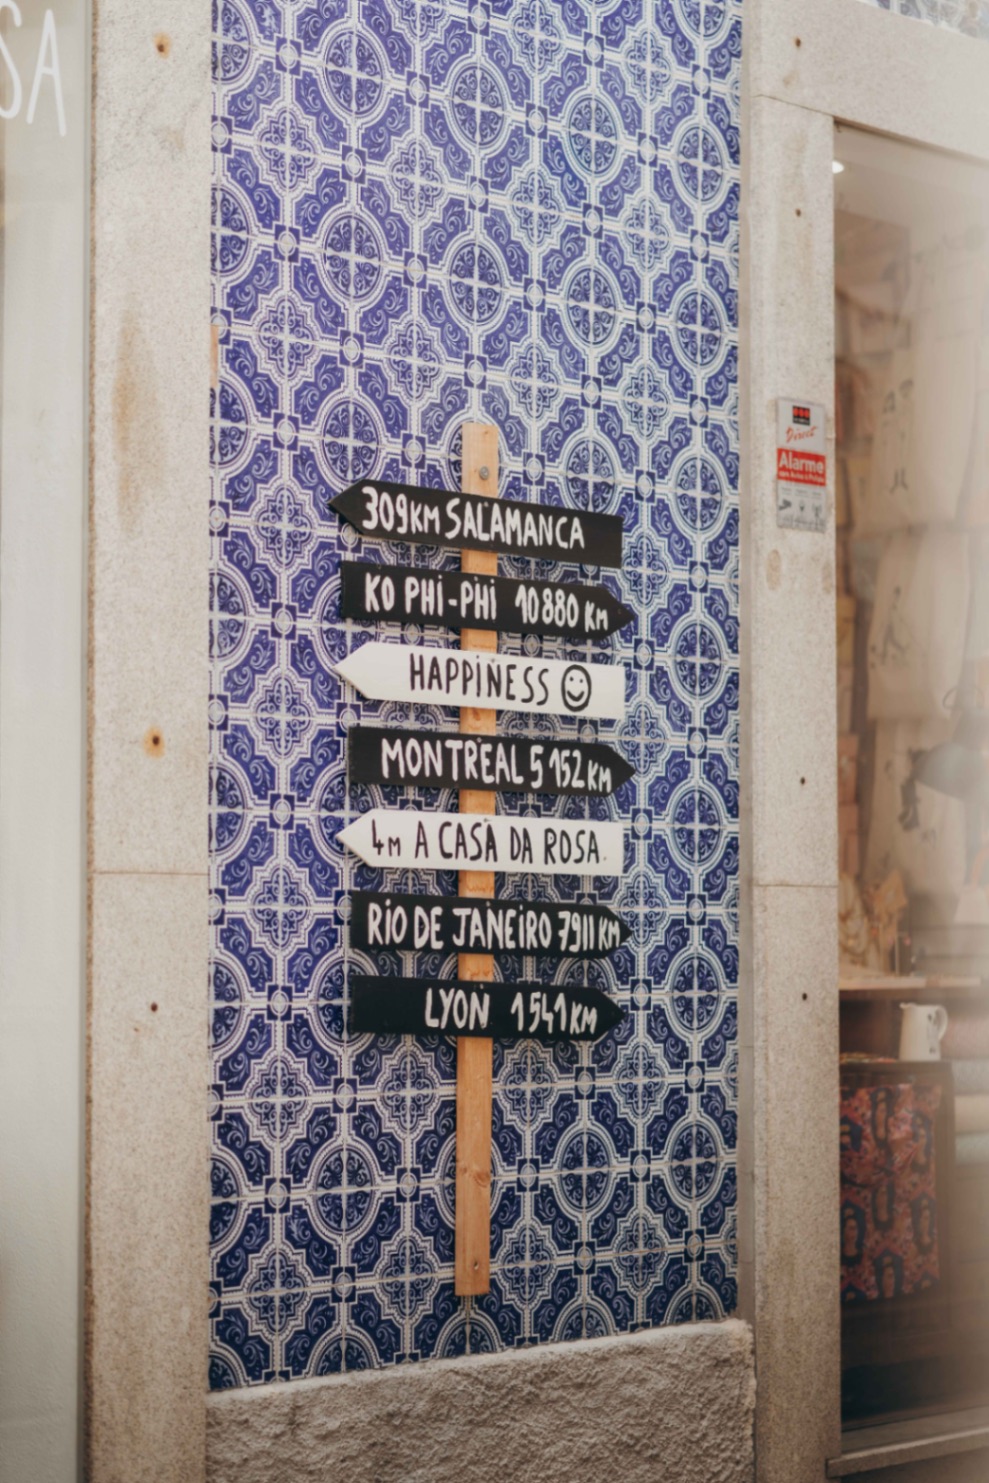 SA
309KM SALAMANCA
KO PHI-PHI 10880 KM
HAPPINESS
MONTREAL 5152KM
4M A CASA DA ROSA.
RIO DE JANEIRO 7911KM
LYON 1541KM
Direct
Alarme